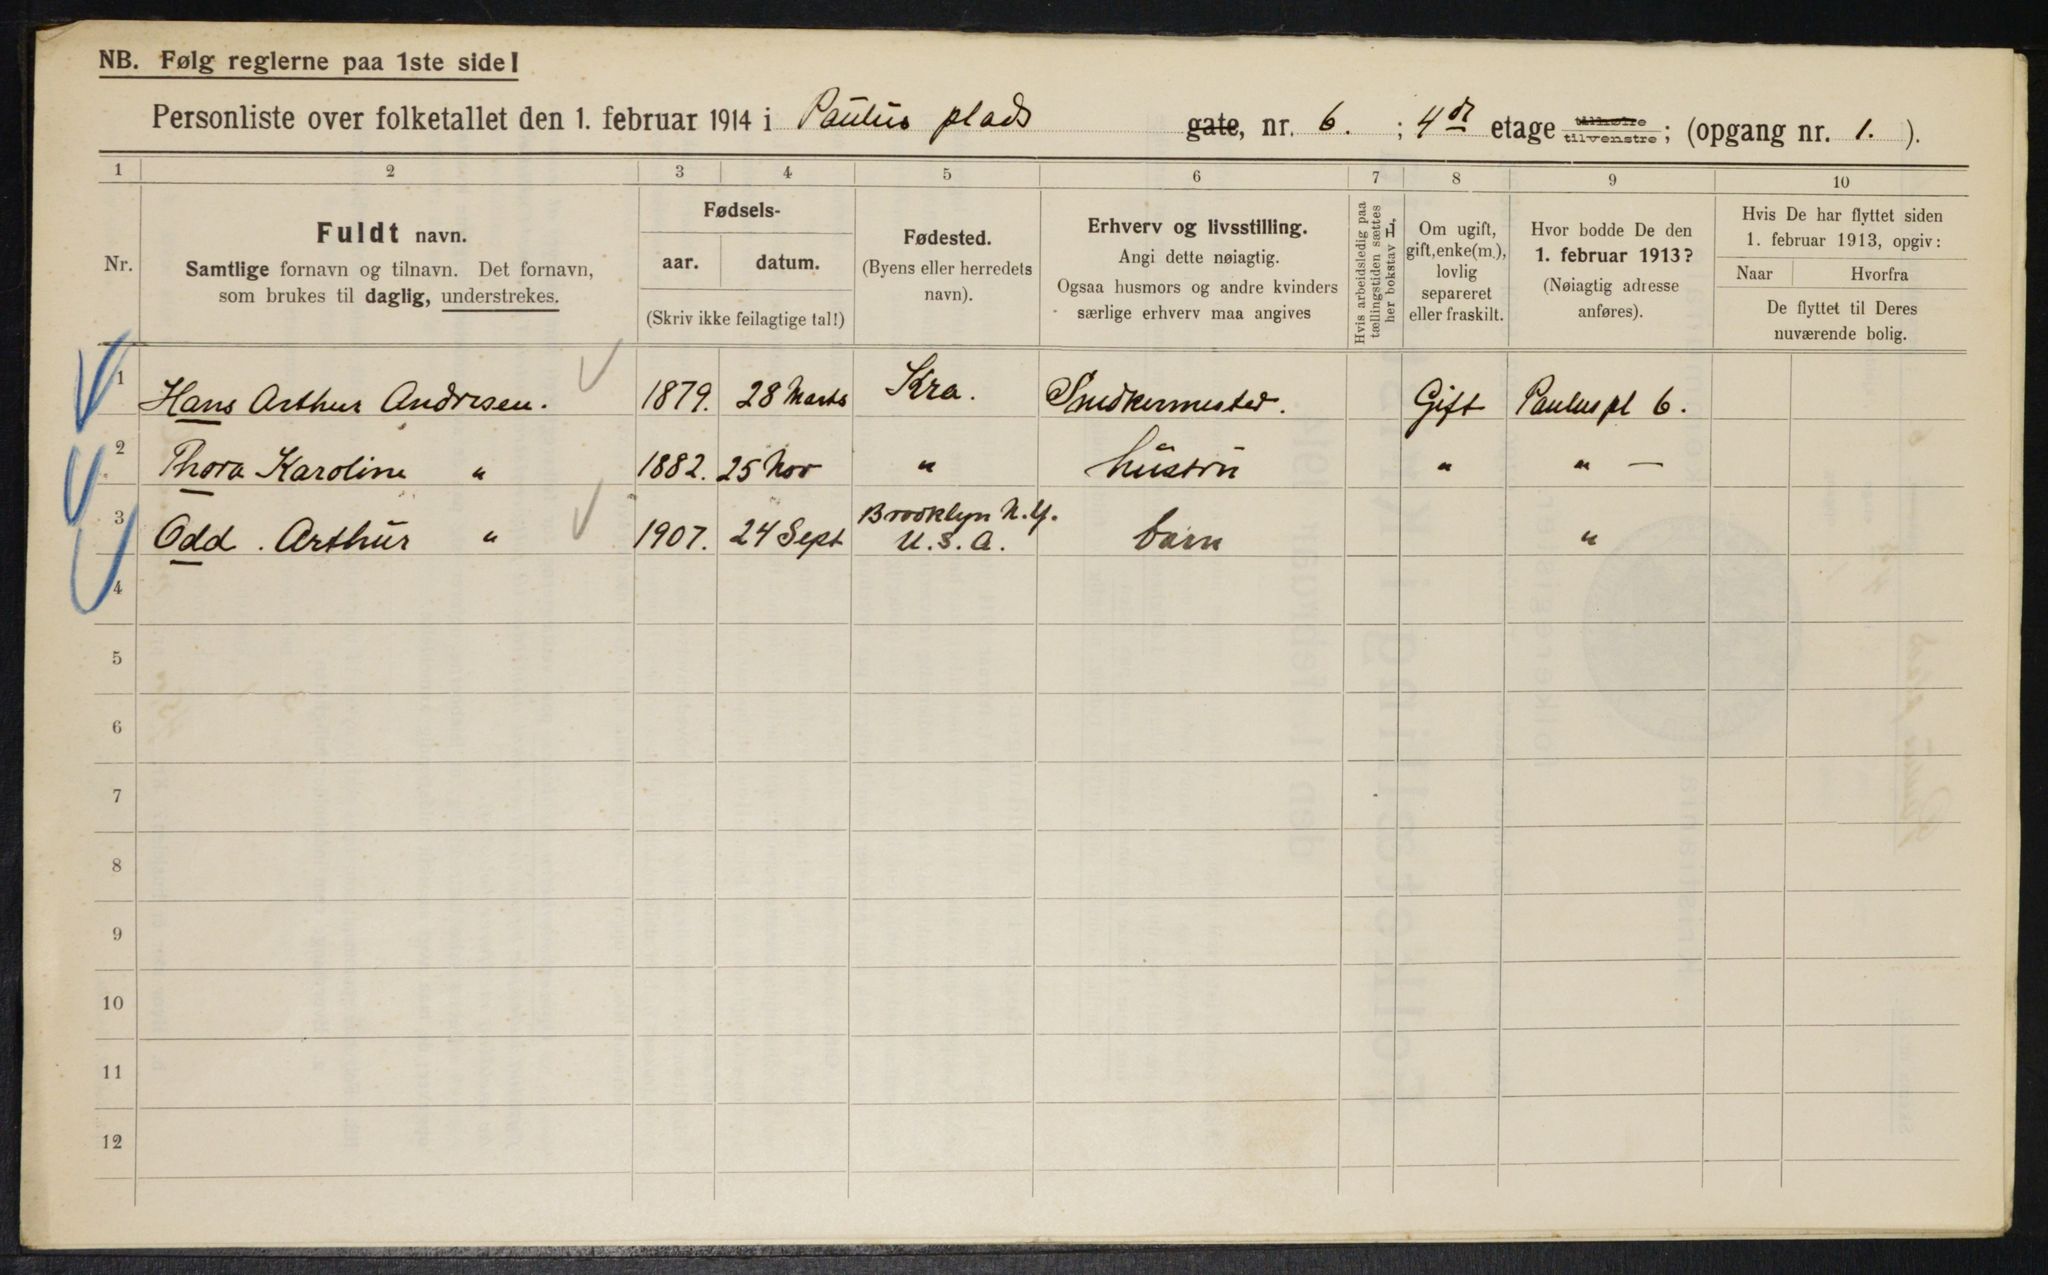 NB. Følg reglerne paa 1ste side!
Personliste over folketallet den 1. februar 1914 i Paulus plads gate, nr. 6. ; 4de etage tilhøire/tilvenstre; (opgang nr. 1. ).
1 2 3 4 5 6 7 8 9 10
Nr.
Fuldt navn.
Samtlige fornavn og tilnavn. Det fornavn,
som brukes til daglig, understrekes.
Fødsels-
aar. datum.
(Skriv ikke feilagtige tal!)
Fødested.
(Byens eller herredets
navn).
Erhverv og livsstilling.
Angi dette nøiagtig.
Ogsaa husmors og andre kvinders
særlige erhverv maa angives
Hvis arbeidsledig paa
tællingstiden sættes
her bokstav L.
Om ugift,
gift, enke(m.),
lovlig
separeret
eller fraskilt.
Hvor bodde De den
1. februar 1913?
(Nøiagtig adresse
anføres).
Hvis De har flyttet siden
1. februar 1913, opgiv:
Naar Hvorfra
De flyttet til Deres
nuværende bolig.
1 Hans Arthur Andresen. 1879. 28 Marts Kra. Snedkermester. Gift Paulus pl 6.
2 Thora Karoline " 1882. 25 Nov " hustru " " —
3 Odd. Arthur " 1907. 24 Sept Brooklyn N.Y.
U.S.A. barn "
4
5
6
7
8
9
10
11
12